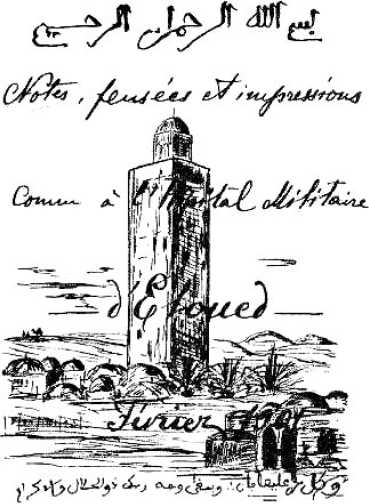 بسم الله الرحمن الرحيم
Notes, pensées et impressions
à l'Hôpital Militaire
— d'Eloued —
Février 1901
كل من عليها فان ويبقى وجه ربك ذو الجلال والاكرام